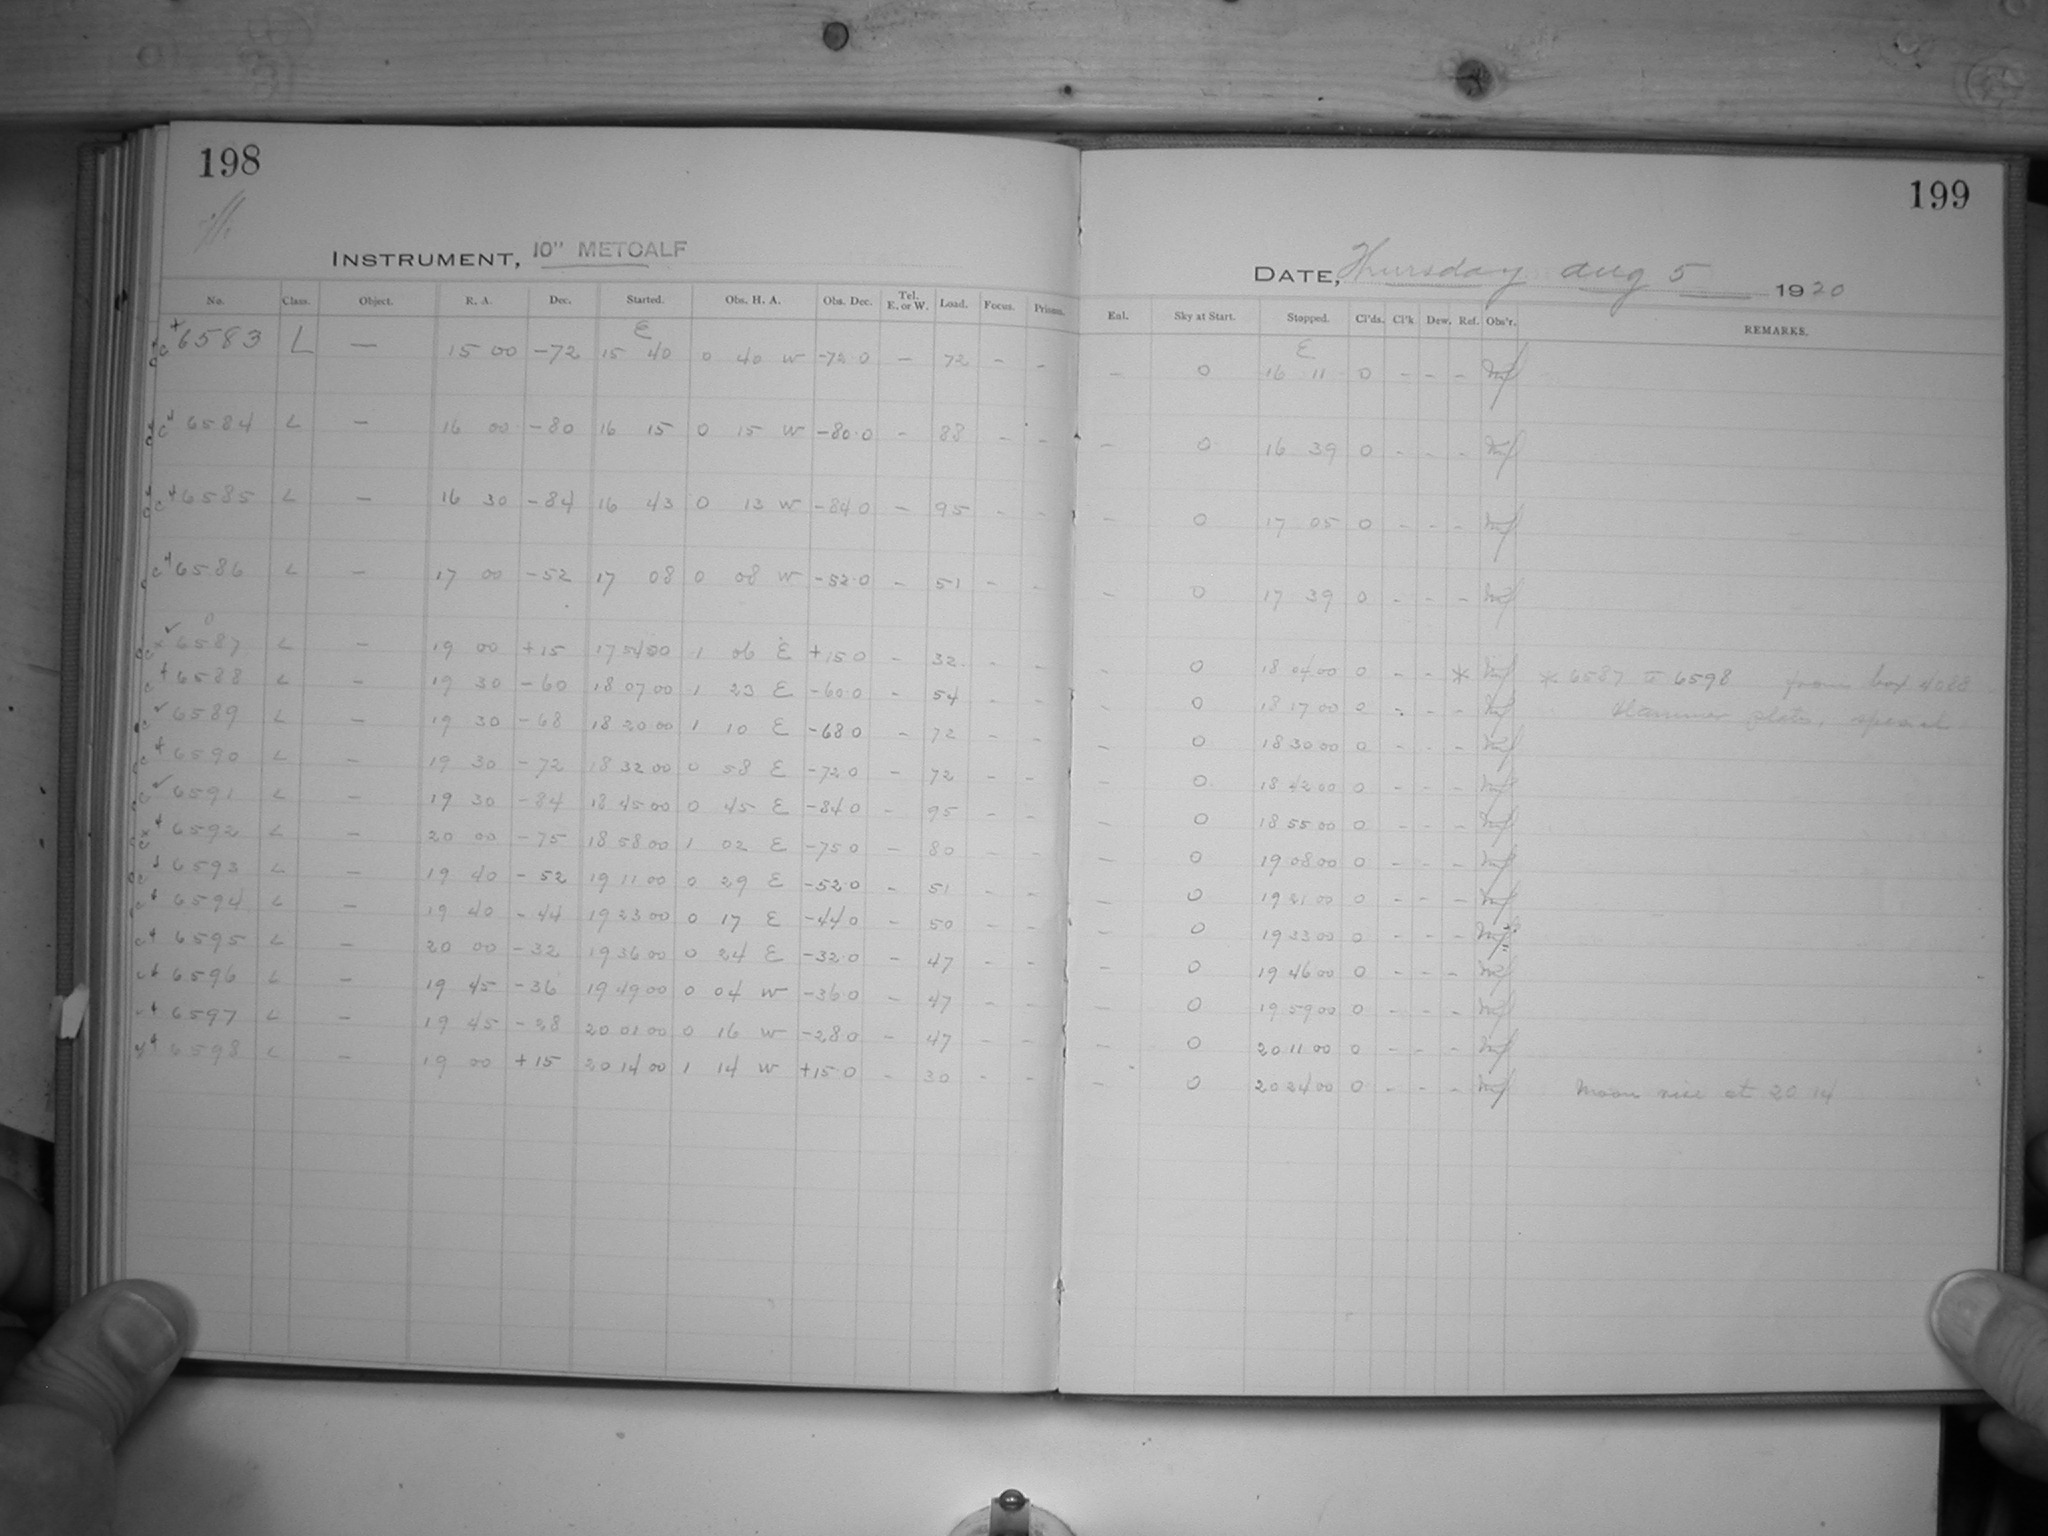 198
INSTRUMENT, 10" METCALF
No. Class. Object. R. A. Dec. Started. Obs. H. A. Obs. Dec. Tel. E. or W. Load. Focus. Prisms.
6583 L — 15 00 -72 E 15 40 0 40 W -72 0 - 72 - -
6584 L — 16 00 -80 16 15 0 15 W -80.0 - 88 - -
6585 L — 16 30 -84 16 43 0 13 W -84 0 - 95 - -
6586 L — 17 00 -52 17 08 0 08 W -52.0 - 51 - -
6587 L — 19 00 +15 17 54 00 1 06 E +15 0 - 32 - -
6588 L — 19 30 -60 18 07 00 1 23 E -60.0 - 54 - -
6589 L — 19 30 -68 18 20 00 1 10 E -68 0 - 72 - -
6590 L — 19 30 -72 18 32 00 0 58 E -72 0 - 72 - -
6591 L — 19 30 -84 18 45 00 0 45 E -84 0 - 95 - -
6592 L — 20 00 -75 18 58 00 1 02 E -75 0 - 80 - -
6593 L — 19 40 -52 19 11 00 0 29 E -52.0 - 51 - -
6594 L — 19 40 -44 19 23 00 0 17 E -44 0 - 50 - -
6595 L — 20 00 -32 19 36 00 0 24 E -32.0 - 47 - -
6596 L — 19 45 -36 19 49 00 0 04 W -36 0 - 47 - -
6597 L — 19 45 -28 20 01 00 0 16 W -28 0 - 47 - -
6598 L — 19 00 +15 20 14 00 1 14 W +15.0 - 30 - -
199
DATE, Thursday Aug 5 1920
Enl. Sky at Start. Stopped. Cl'ds. Cl'k. Dew. Ref. Obs'r. REMARKS.
- 0 E 16 11 0 - - -
- 0 16 39 0 - - -
- 0 17 05 0 - - -
- 0 17 39 0 - - -
- 0 18 04 00 0 - - * * 6587 to 6598 from box
- 0 18 17 00 0 - - - plates, special
- 0 18 30 00 0 - - -
- 0 18 42 00 0 - - -
- 0 18 55 00 0 - - -
- 0 19 08 00 0 - - -
- 0 19 21 00 0 - - -
- 0 19 33 00 0 - - -
- 0 19 46 00 0 - - -
- 0 19 59 00 0 - - -
- 0 20 11 00 0 - - -
- 0 20 24 00 0 - - - Moon rise at 20 14